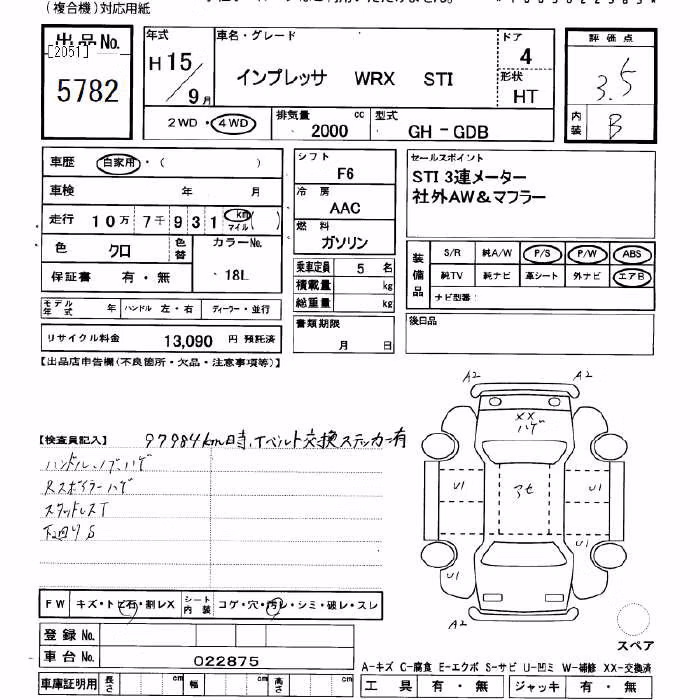 (複合機)対応用紙
出品No.
[2051]
5782
年式
H15/9月
車名・グレード
インプレッサ WRX STI
ドア
4
形状
HT
評価点
3.5
内装
B
2WD・4WD
排気量
2000 cc
型式
GH-GDB
車歴 自家用・( )
車検 年 月
走行 10万7千931 km マイル( )
色 クロ 色替
カラーNo.
18L
保証書 有・無
モデル年式 年 ハンドル 左・右 ディーラー・並行
リサイクル料金 13,090 円 預託済
シフト
F6
冷房
AAC
燃料
ガソリン
乗車定員 5 名
積載量 kg
総重量 kg
書類期限
月 日
セールスポイント
STI 3連メーター
社外AW&マフラー
装備品
S/R 純A/W P/S P/W ABS
純TV 純ナビ 革シート 外ナビ エアB
ナビ型番:
後日品
【出品店申告欄(不良箇所・欠品・注意事項等)】
【検査員記入】 97984km時、Tベルト交換ステッカー有
ハンドル、ノブハゲ
Rスポイラーハゲ
スタッドレスT
下回りS
A2 A2
XX
ハゲ
U1 アセ U1
U1 U1
A2
スペア
FW キズ・トビ石・割レX シート内装 コゲ・穴・汚レ・シミ・破レ・スレ
登録No.
車台No. 022875
車庫証明用 長さ cm 幅 cm 高さ cm
A-キズ C-腐食 E-エクボ S-サビ U-凹ミ W-補修 XX-交換済
工具 有・無 ジャッキ 有・無